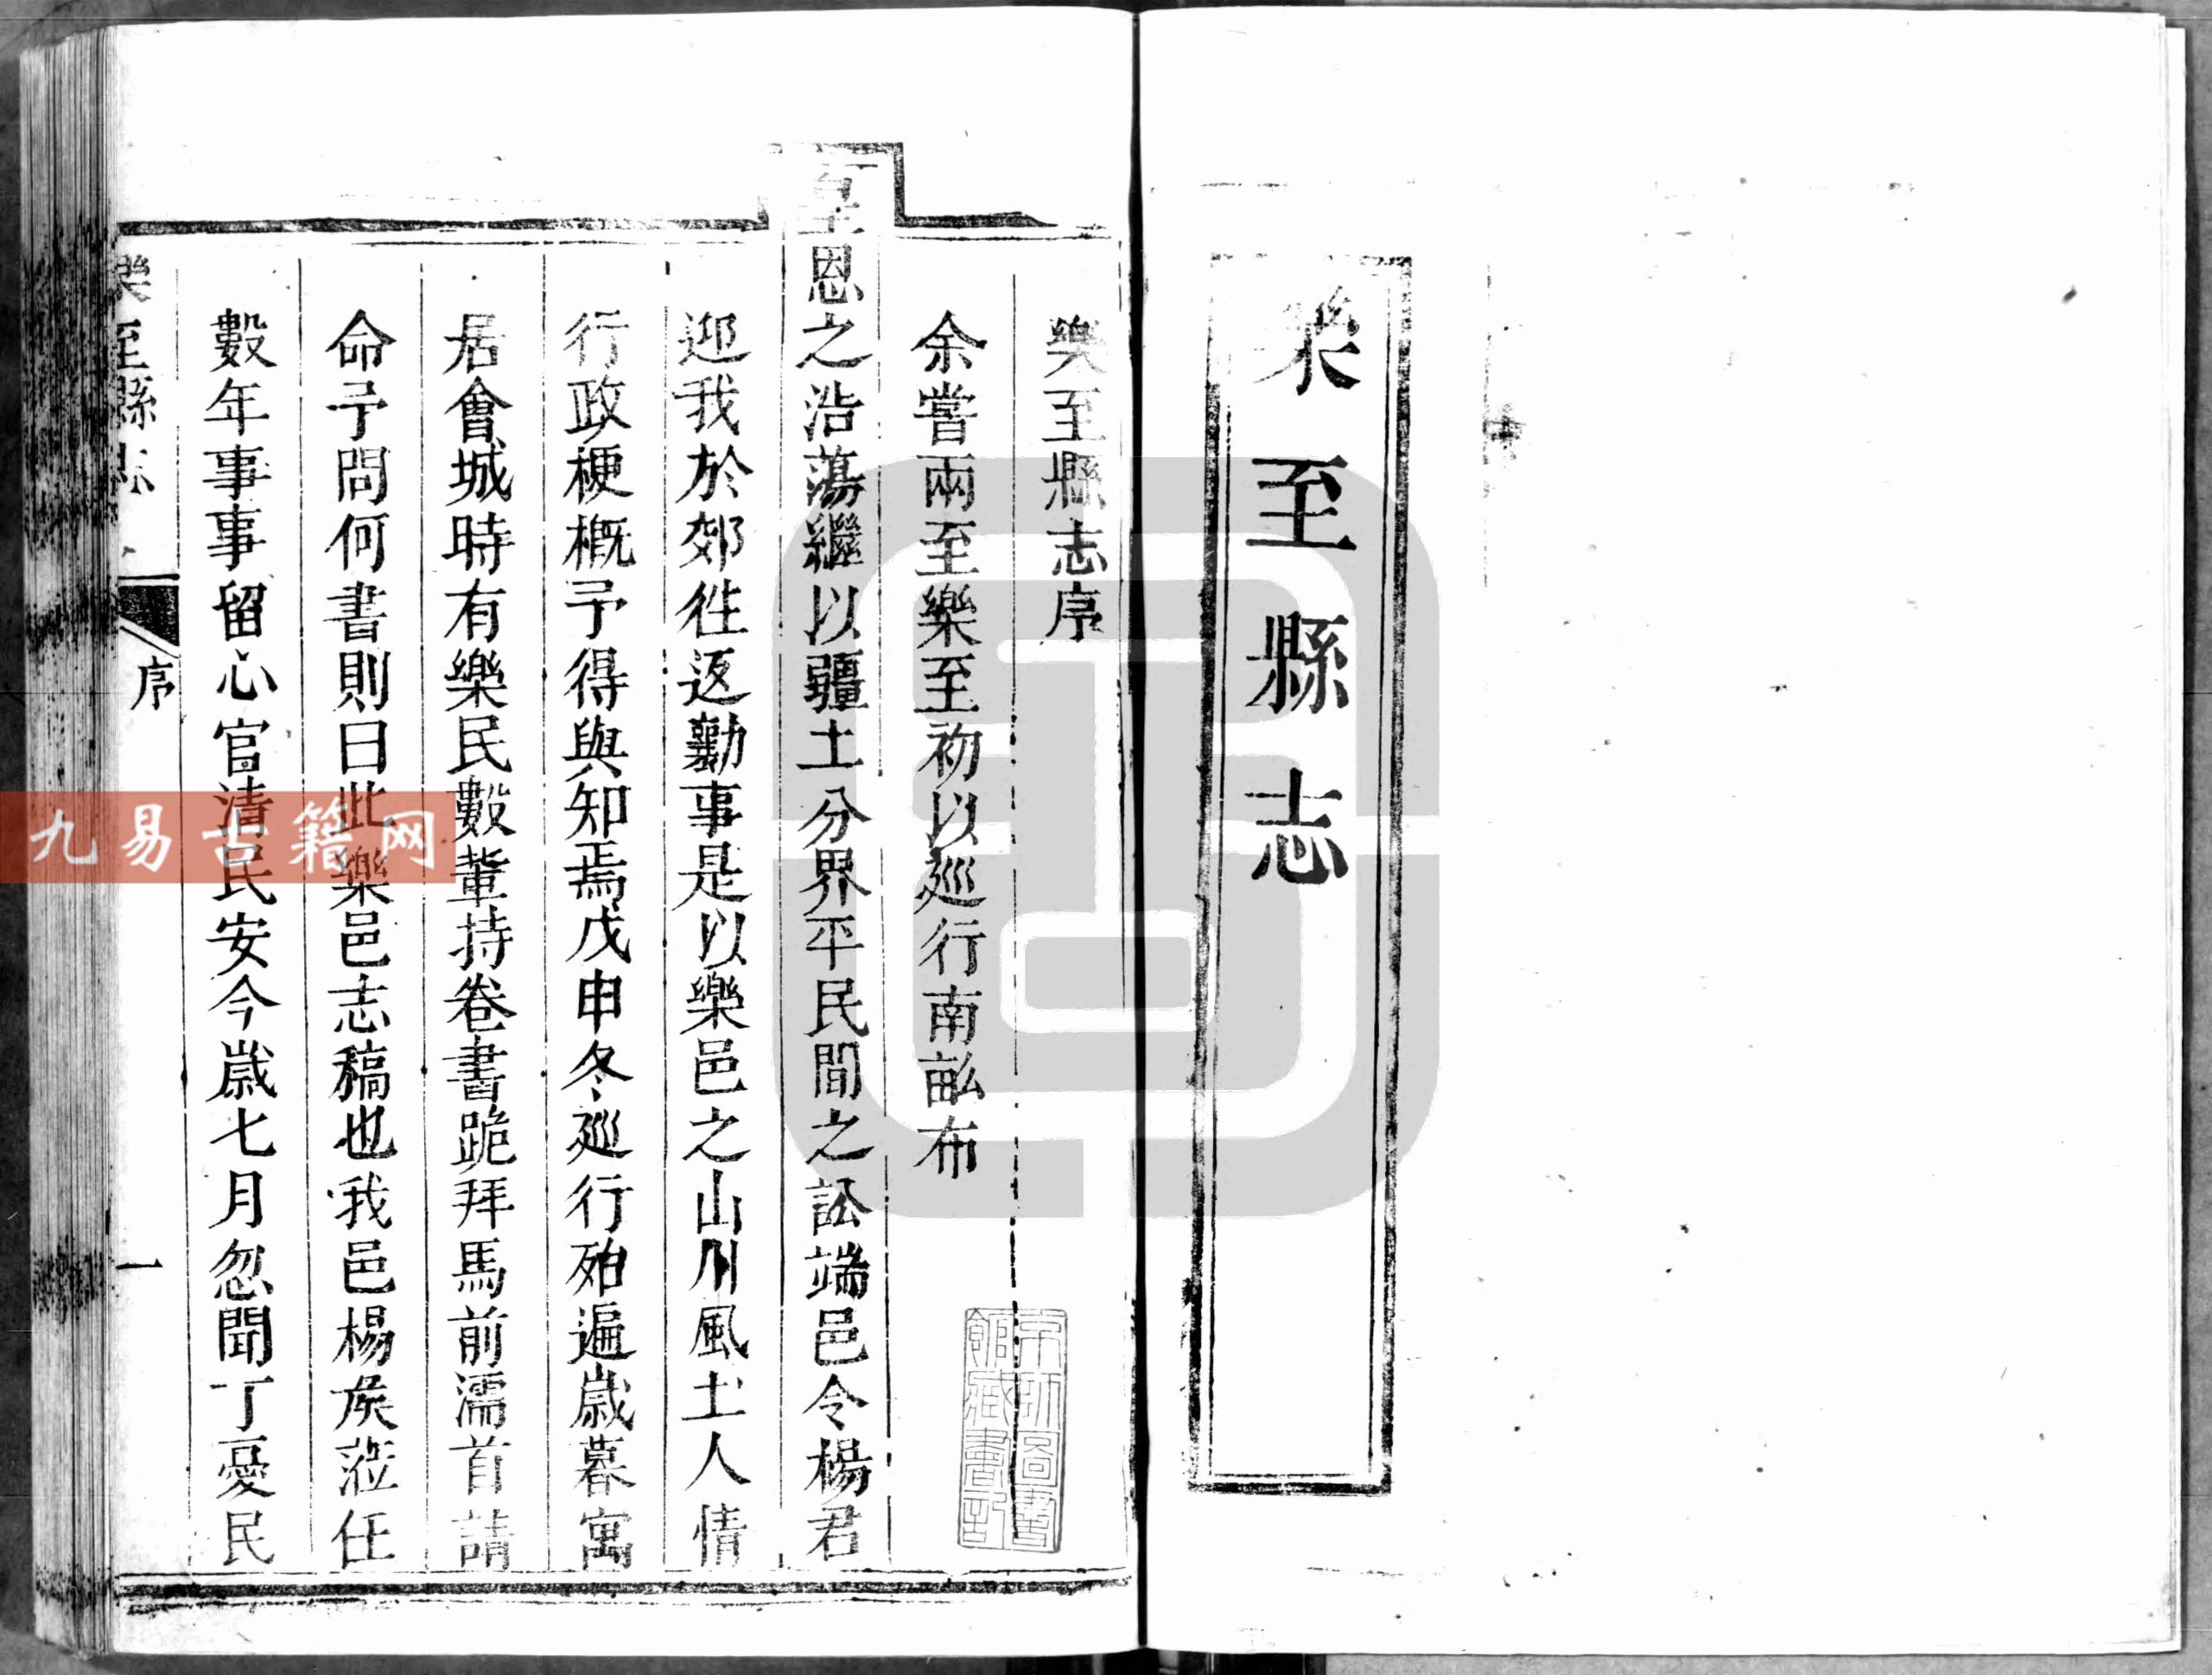 樂至縣志
樂至縣志序
余嘗兩至樂至初以廵行南畝布
皇恩之浩蕩繼以疆土分界平民間之訟端邑令楊君
迎我於郊徃返勤事是以樂邑之山川風土人情
行政梗概予得與知焉戊申冬廵行殆遍歲暮寓
居會城時有樂民數軰持卷書跪拜馬前濡首請
命予問何書則曰此樂邑志稿也我邑楊矦蒞任
數年事事畱心官清民安今歲七月忽聞丁憂民
樂至縣志
序
一
京師圖書
館藏書記
九易古籍网